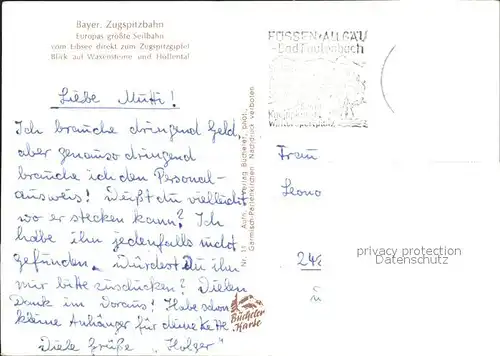 Bayer. Zugspitzbahn
Europas größte Seilbahn
vom Eibsee direkt zum Zugspitzgipfel
Blick auf Waxensteine und Höllental
FÜSSEN-ALLGÄU
-Bad Faulenbach
Liebe Mutti!
Ich brauche dringend Geld,
aber genauso dringend
brauche ich den Personal-
ausweis! Weißt du vielleicht
wo er stecken kann? Ich
habe ihn jedenfalls nicht
gefunden. Würdest Du ihn
mir bitte zuschicken? Vielen
Dank im Voraus! Habe schon
kleine Anhänger für deine Kette.
Viele Grüße „Holger"
Nr. 14 Aufn. u. Verlag Bücheler, phot.
Garmisch-Partenkirchen Nachdruck verboten
Bücheler
Karte
Frau
Leono
242
privacy protection
Datenschutz